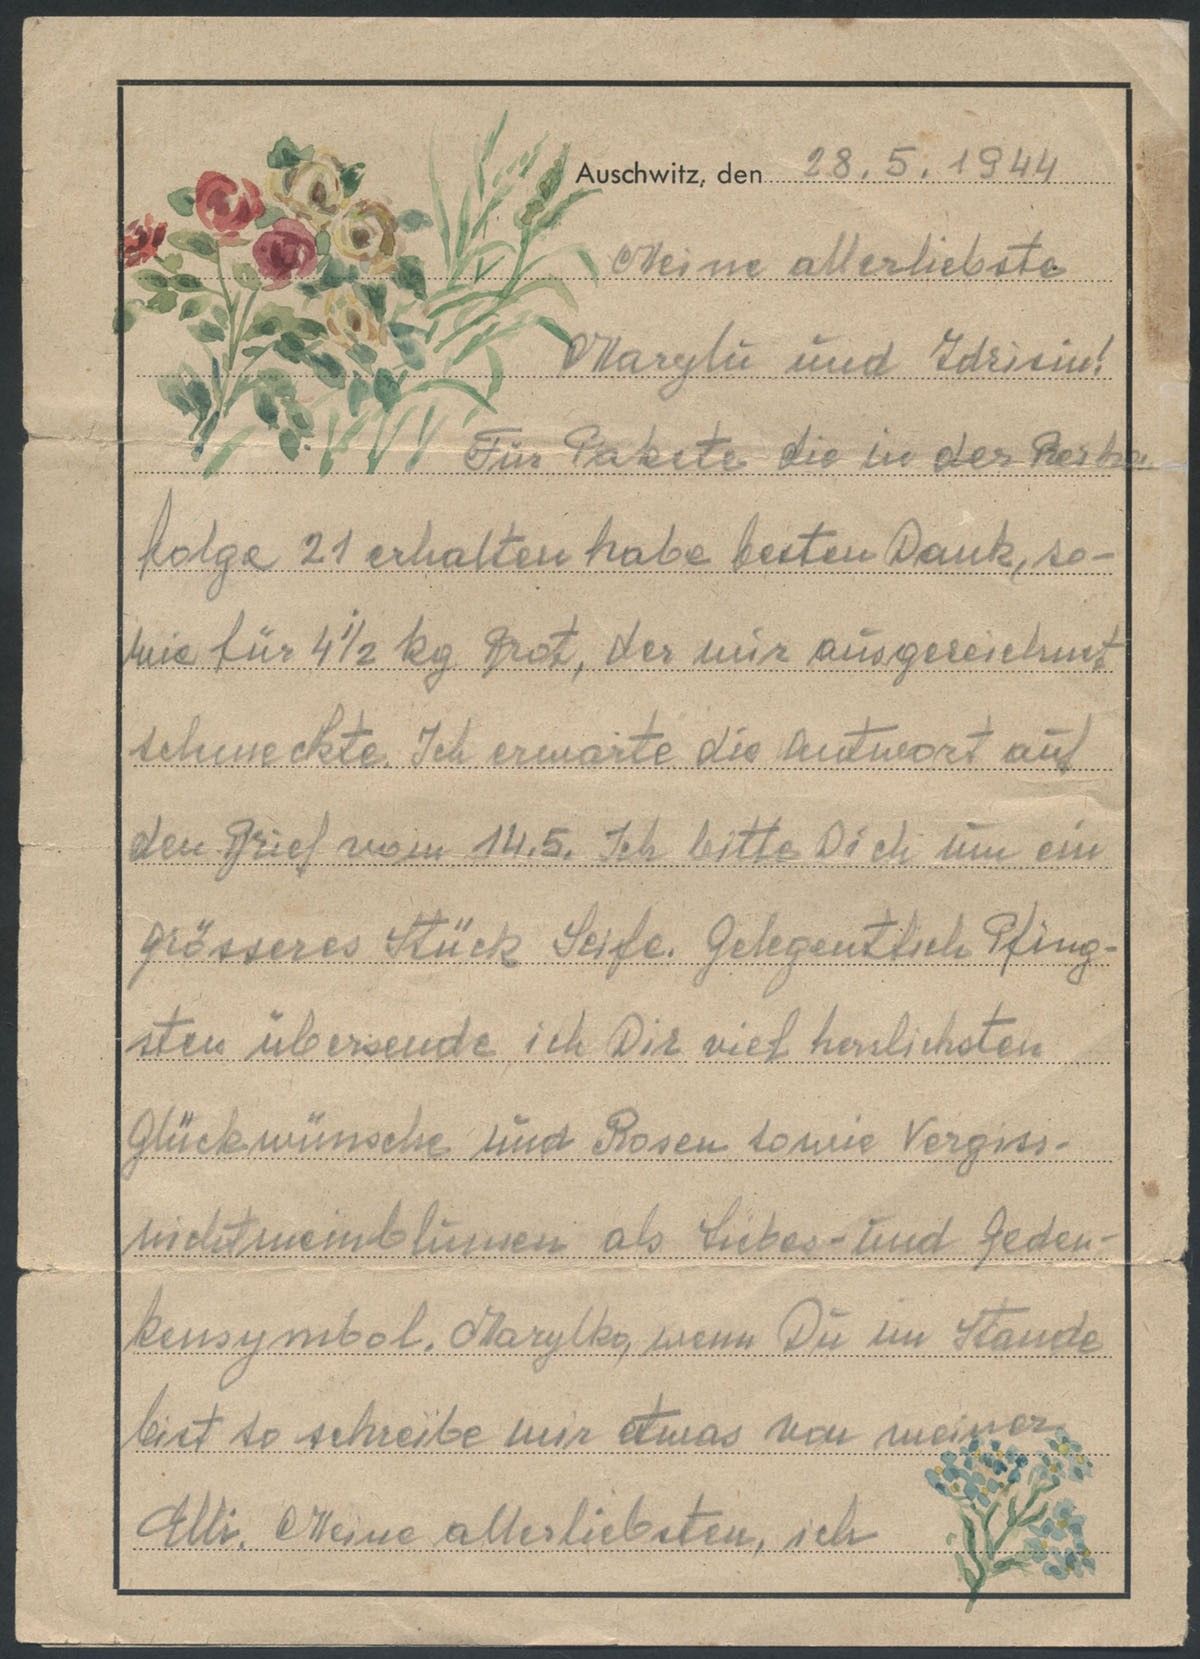 Auschwitz, den 28.5.1944
Meine allerliebste
Marylu und Idrisiu!
Für Pakete die in der Reihen
folge 21 erhalten habe besten Dank, so-
wie für 4 1/2 kg Brot, der mir ausgezeichnet
schmeckte. Ich erwarte die Antwort auf
den Brief vom 14.5. Ich bitte Dich um ein
grösseres Stück Seife. Gelegentlich Pfing-
sten übersende ich Dir viel herzlichsten
Glückwünsche und Rosen sowie Vergiss-
nichtmeinblumen als Liebes- und Geden-
kensymbol. Marylko, wenn Du im Stande
bist so schreibe mir etwas von meiner
Elli. Meine allerliebsten, ich